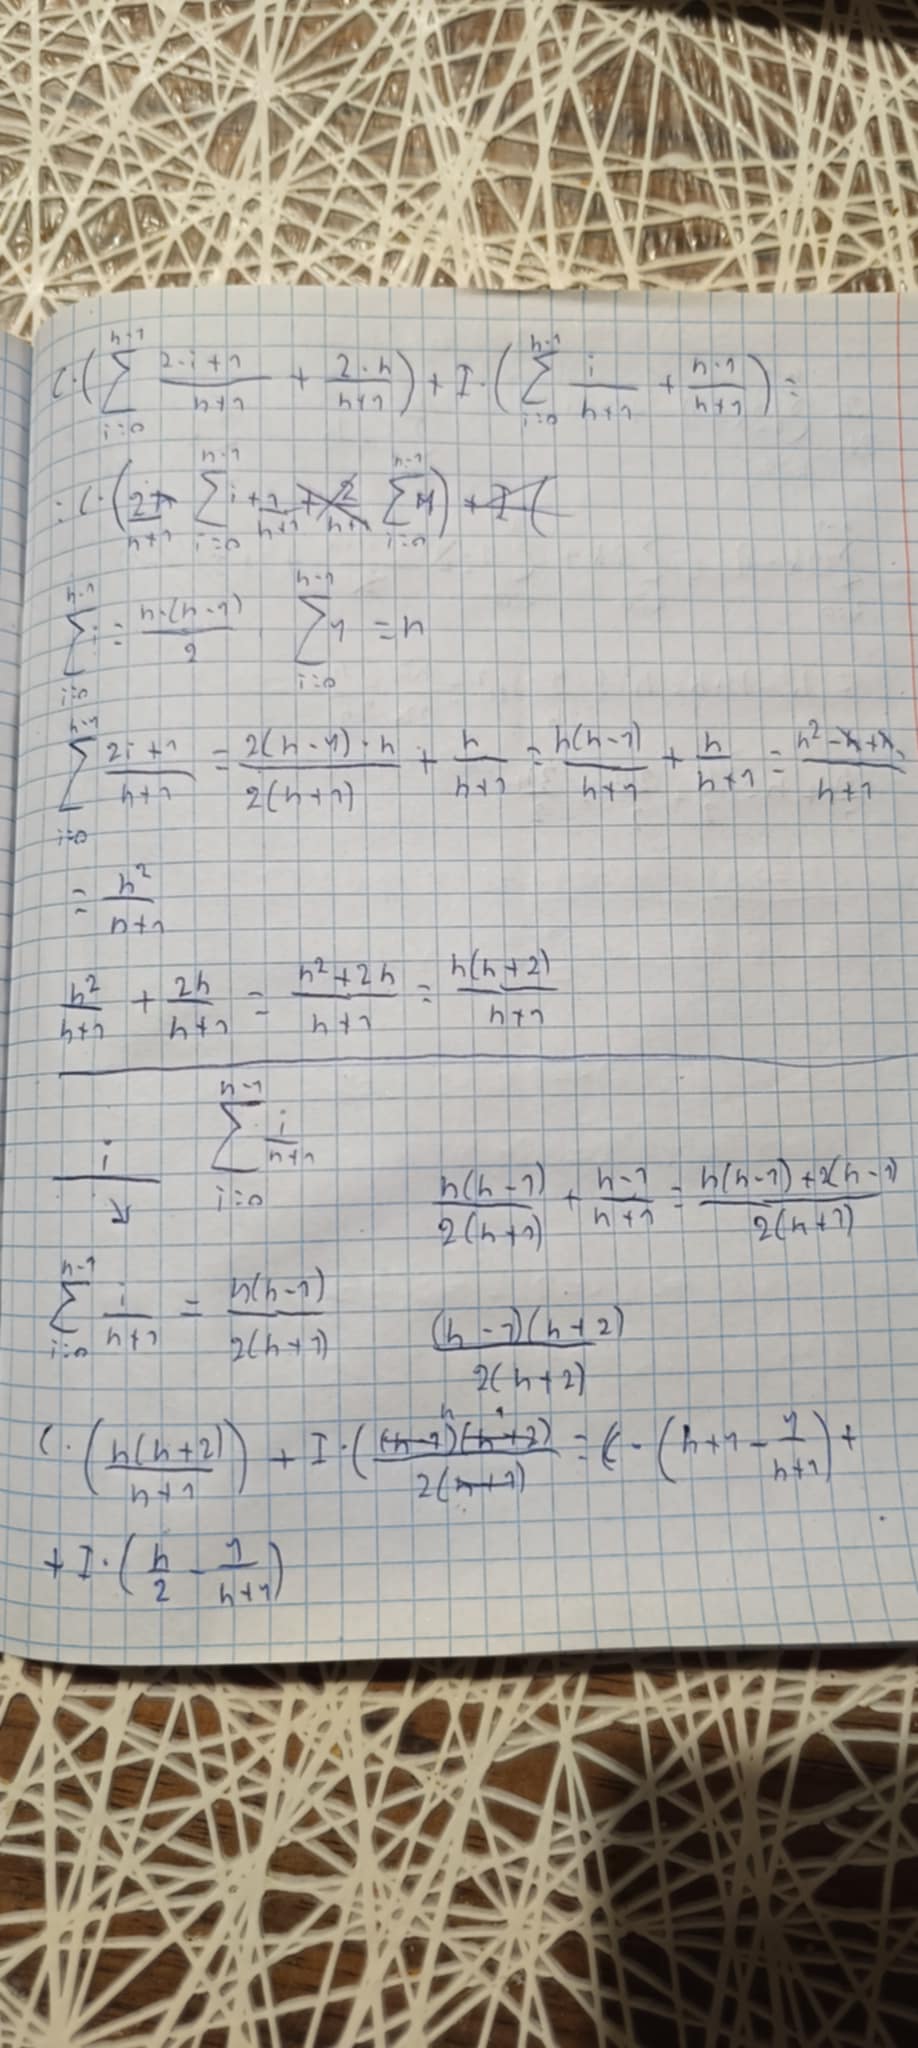 C·(∑_{i=0}^{n-1} (2·i+1)/(n+1) + (2·n)/(n+1)) + I·(∑_{i=0}^{n-1} i/(n+1) + (n-1)/(n+1)) =
= C·(2/(n+1) ∑_{i=0}^{n-1} i + 1/(n+1) ∑_{i=0}^{n-1} 1) +
∑_{i=0}^{n-1} i = n·(n-1)/2 ∑_{i=0}^{n-1} 1 = n
∑_{i=0}^{n-1} (2i+1)/(n+1) = 2(n-1)·n/(2(n+1)) + n/(n+1) = n(n-1)/(n+1) + n/(n+1) = (n²-n+n)/(n+1)
= n²/(n+1)
n²/(n+1) + 2n/(n+1) = (n²+2n)/(n+1) = n(n+2)/(n+1)
i ∑_{i=0}^{n-1} i/(n+1)
n(n-1)/(2(n+1)) + (n-1)/(n+1) = (n(n-1)+2(n-1))/(2(n+1))
∑_{i=0}^{n-1} i/(n+1) = n(n-1)/(2(n+1))
(n-1)(n+2)/(2(n+2))
C·(n(n+2)/(n+1)) + I·((n-1)(n+2)/(2(n+1))) = C·(n+1 - 1/(n+1)) +
+ I·(n/2 - 1/(n+1))